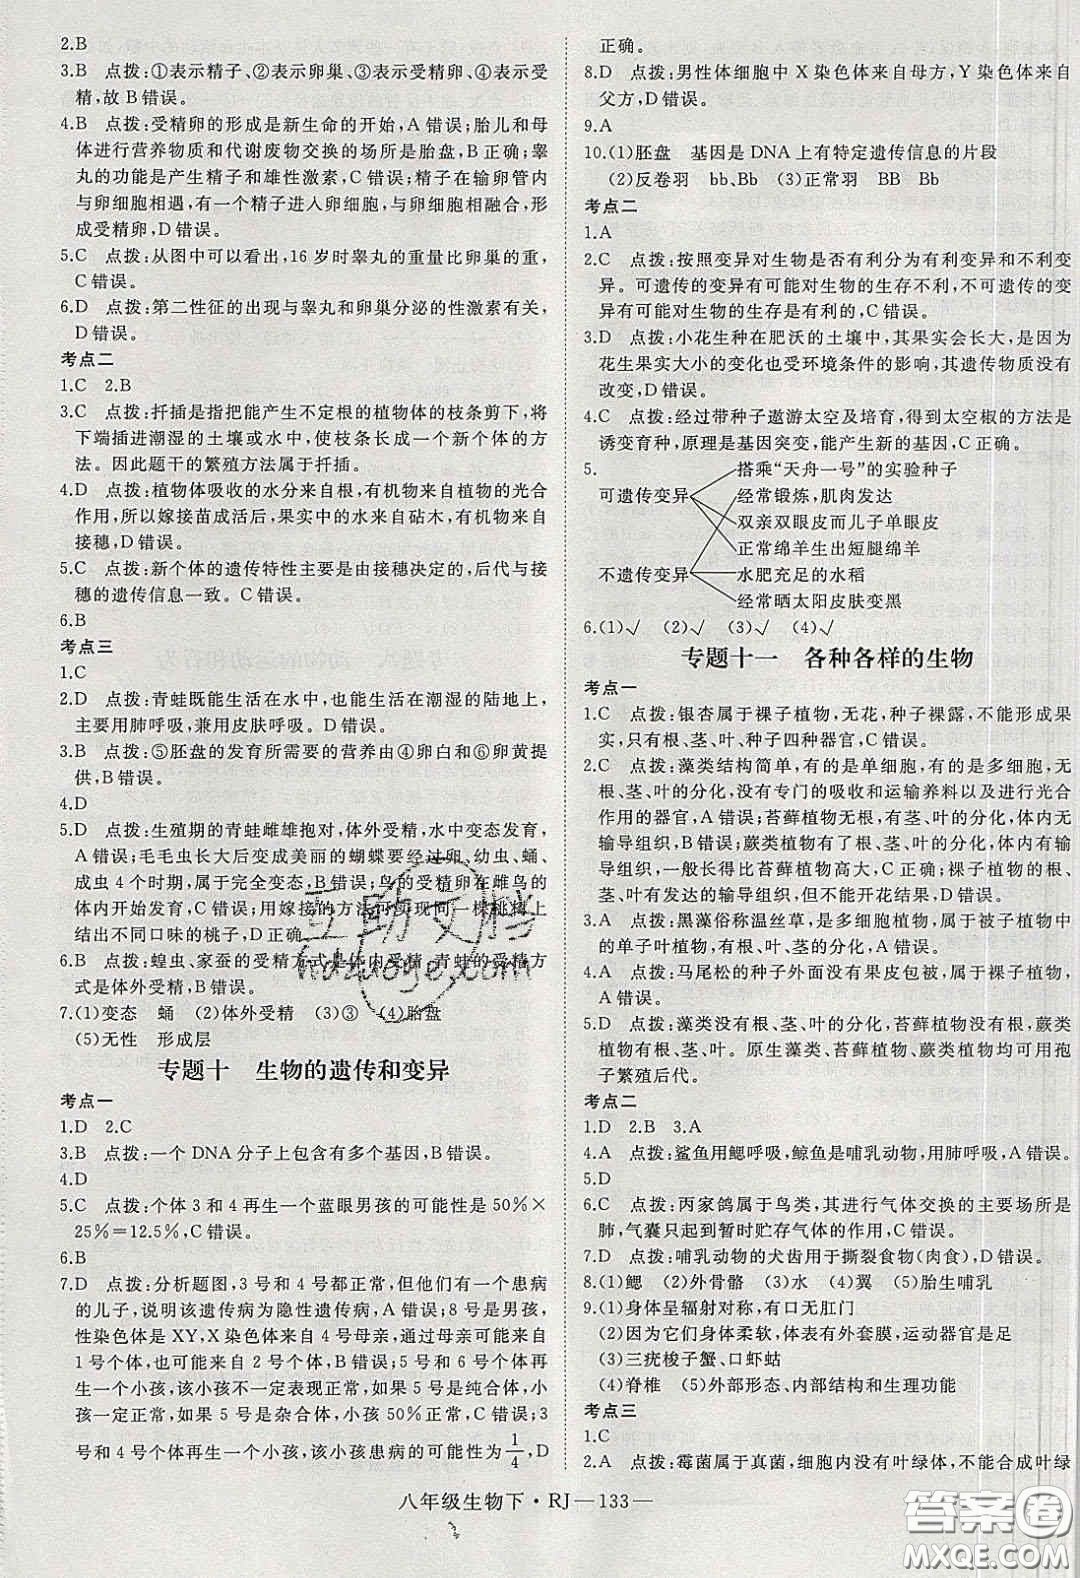 2.B
3.B　点拨:①表示精子、②表示卵巢、③表示受精卵、④表示受
精,故B错误。
4.B　点拨:受精卵的形成是新生命的开始,A错误;胎儿和母
体进行营养物质和代谢废物交换的场所是胎盘,B正确;睾
丸的功能是产生精子和雄性激素,C错误;精子在输卵管内
与卵细胞相遇,有一个精子进入卵细胞,与卵细胞相融合,形
成受精卵,D错误。
5.C　点拨:从图中可以看出,16岁时睾丸的重量比卵巢的重,
C错误。
6.D　点拨:第二性征的出现与睾丸和卵巢分泌的性激素有关,
D错误。
考点二
1.C　2.B
3.C　点拨:扦插是指把能产生不定根的植物体的枝条剪下,将
下端插进潮湿的土壤或水中,使枝条长成一个新个体的方
法。因此题干的繁殖方法属于扦插。
4.D　点拨:植物体吸收的水分来自根,有机物来自植物的光合
作用,所以嫁接苗成活后,果实中的水来自砧木,有机物来自
接穗,D错误。
5.C　点拨:新个体的遗传特性主要是由接穗决定的,后代与接
穗的遗传信息一致。C错误。
6.B
考点三
1.C
2.D　点拨:青蛙既能生活在水中,也能生活在潮湿的陆地上,
主要用肺呼吸,兼用皮肤呼吸。D错误。
3.B　点拨:⑤胚盘的发育所需要的营养由④卵白和⑥卵黄提
供,B错误。
4.D
5.D　点拨:生殖期的青蛙雌雄抱对,体外受精,水中变态发育,
A错误;毛毛虫长大后变成美丽的蝴蝶要经过卵、幼虫、蛹、
成虫4个时期,属于完全变态,B错误;鸟的受精卵在雌鸟的
体内开始发育,C错误;用嫁接的方法可实现同一棵桃树上
结出不同口味的桃子,D正确。
6.B　点拨:蝗虫、家蚕的受精方式是体内受精,青蛙的受精方
式是体外受精,B错误。
7.(1)变态　蛹　(2)体外受精　(3)③　(4)胎盘
(5)无性　形成层
专题十　生物的遗传和变异
考点一
1.D　2.C
3.B　点拨:一个DNA分子上包含有多个基因,B错误。
4.D
5.C　点拨:个体3和4再生一个蓝眼男孩的可能性是50%×
25%=12.5%,C错误。
6.B
7.D　点拨:分析题图,3号和4号都正常,但他们有一个患病
的儿子,说明该遗传病为隐性遗传病,A错误;8号是男孩,
性染色体是XY,X染色体来自4号母亲,母亲可能来自
1号个体,也可能来自2号个体,B错误;5号和6号个体再
生一个小孩,该小孩不一定表现正常,如果5号是纯合体,小
孩一定正常,如果5号是杂合体,小孩50%正常,C错误;3
号和4号个体再生一个小孩,该小孩患病的可能性为1/4,D
正确。
8.D　点拨:男性体细胞中X染色体来自母方,Y染色体来自
父方,D错误。
9.A
10.(1)胚盘　基因是DNA上有特定遗传信息的片段
(2)反卷羽　bb、Bb　(3)正常羽　BB　Bb
考点二
1.A
2.C　点拨:按照变异对生物是否有利分为有利变异和不利变
异。可遗传的变异有可能对生物的生存不利,不可遗传的变
异有可能对生物的生存是有利的。
3.D　点拨:小花生种在肥沃的土壤中,其果实会长大,是因为
花生果实大小的变化也受环境条件的影响,其遗传物质没有
改变,D错误。
4.C　点拨:经过带种子遨游太空及培育,得到太空椒的方法是
诱变育种,原理是基因突变,能产生新的基因,C正确。
5.
搭乘“天舟一号”的实验种子
可遗传变异　经常锻炼,肌肉发达
双亲双眼皮而儿子单眼皮
正常绵羊生出短腿绵羊
不遗传变异　水肥充足的水稻
经常晒太阳皮肤变黑
6.(1)√　(2)√　(3)√　(4)√
专题十一　各种各样的生物
考点一
1.C　点拨:银杏属于裸子植物,无花,种子裸露,不能形成果
实,只有根、茎、叶、种子四种器官,C错误。
2.C　点拨:藻类结构简单,有的是单细胞,有的是多细胞,无
根、茎、叶的分化,没有专门的吸收和运输养料以及进行光合
作用的器官,A错误;苔藓植物,有茎、叶的分化,体内无
输导组织,B错误;蕨类植物有了根、茎、叶的分化,体内有输
导组织,一般长得比苔藓植物高大,C正确;裸子植物有根、
茎、叶有发达的输导组织,但不能开花结果,D错误。
3.A　点拨:黑藻俗称温丝草,是多细胞植物,属于被子植物中
的单子叶植物,有根、茎、叶的分化,A错误。
4.A　点拨:马尾松的种子外面没有果皮包被,属于裸子植物,
A错误。
5.D　点拨:藻类没有根、茎、叶的分化,苔藓植物没有根,蕨类
植物有根、茎、叶。原生藻类、苔藓植物、蕨类植物均可用孢
子繁殖后代。
考点二
1.D　2.B　3.A
4.A　点拨:鲨鱼用鳃呼吸,鲸鱼是哺乳动物,用肺呼吸,A错误。
5.D
6.C　点拨:丙家鸽属于鸟类,其进行气体交换的主要场所是
肺,气囊只起到暂时贮存气体的作用,C错误。
7.D　点拨:哺乳动物的犬齿用于撕裂食物(肉食),D错误。
8.(1)鳃　(2)外骨骼　(3)水　(4)翼　(5)胎生哺乳
9.(1)身体呈辐射对称,有口无肛门
(2)因为它们身体柔软,体表有外套膜,运动器官是足
(3)三疣梭子蟹、口虾蛄
(4)脊椎　(5)外部形态、内部结构和生理功能
考点三
1.C
2.A　点拨:霉菌属于真菌,细胞内没有叶绿体,不能合成叶绿
八年级生物下·RJ—133—
互助文档
hdzuoye.com
答案圈
MXQE.COM